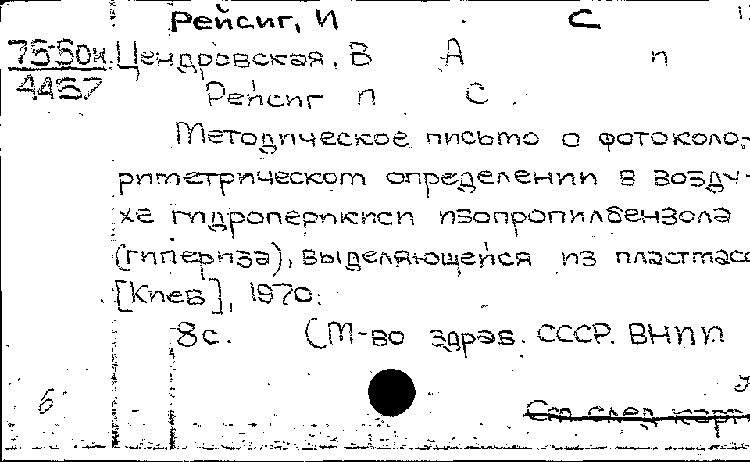 Рейсиг, И С
75-50к Цендровская, В А п
4457 Рейсиг п С.
Методическое письмо о фотоколо-
риметрическом определении в возду-
хе гидроперикиси изопропилбензола
(гипериза), выделяющейся из пластмасс
[Киев], 1970.
8с. (М-во здрав. СССР. ВНИИ
б
См след карт